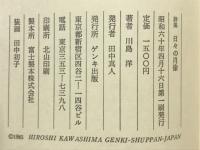 詩集 日々の肖像
昭和六十年四月十六日第一刷発行
定価 一五〇〇円
著者 川島 洋
発行者 田中真人
発行所 ゲンキ出版
東京都新宿区四谷二ー一四ー四四谷
電話 東京三五三ー七三九八
印刷所 北山印刷
製本所 富士製本株式会社
装画 田中初子
©1985 HIROSHI KAWASHIMA GENKI-SHUPPAN-JAPAN